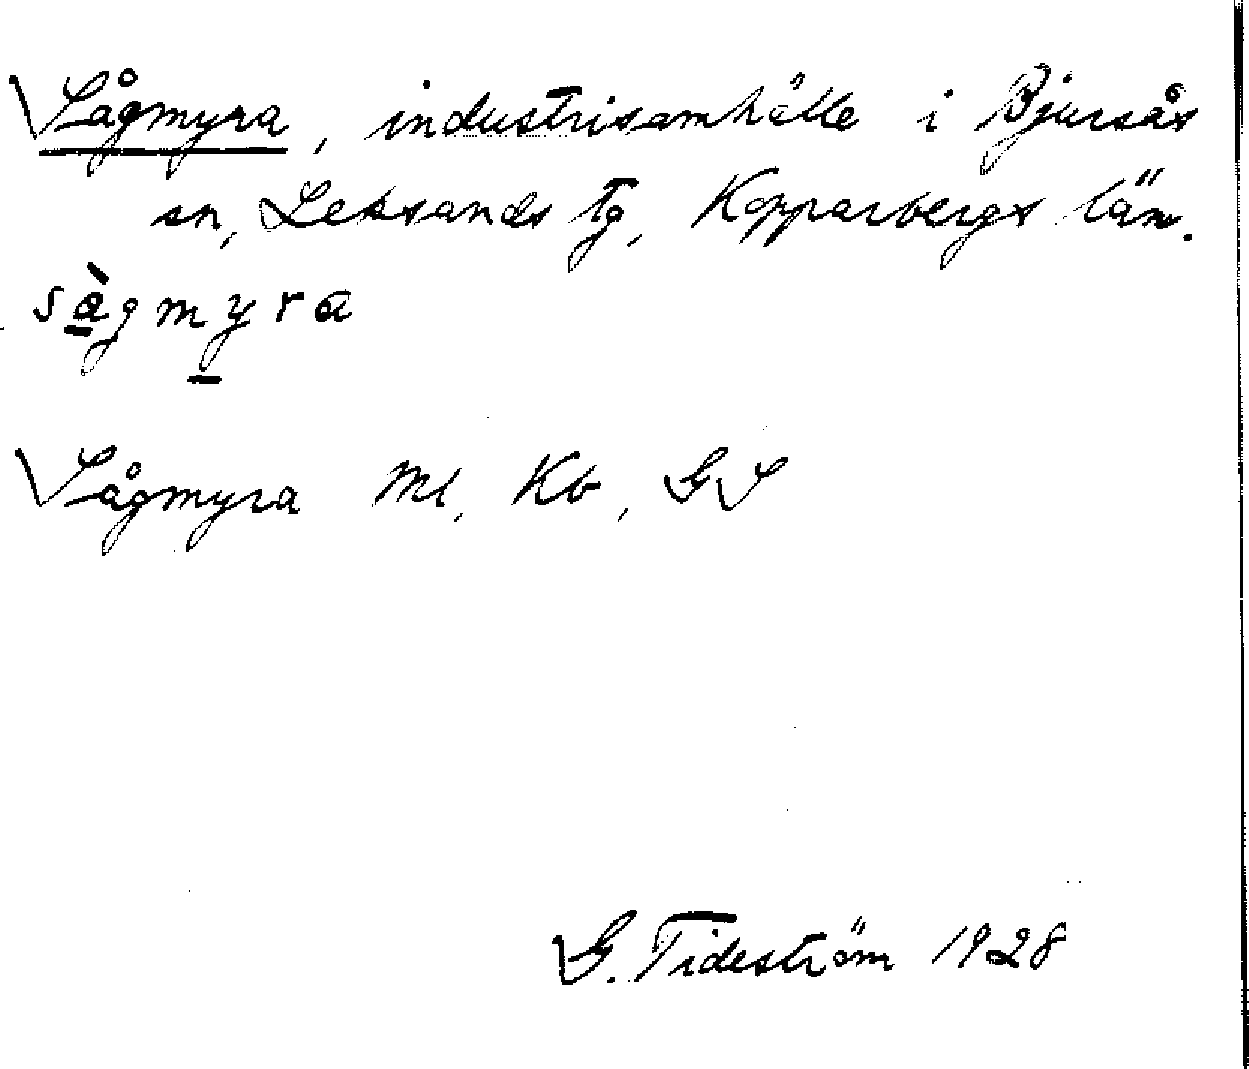 Sågmyra, industrisamhälle i Bjursås
sn, Leksands tg, Kopparbergs län.
sàgmyra
Sågmyra Ml, Kb, GS
G. Tideström 1928